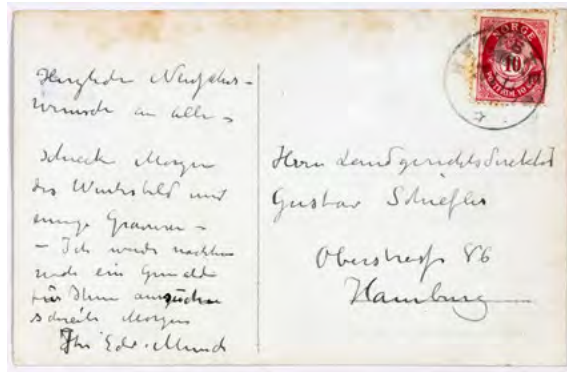 Herzliche Neujahrs-
wünsche an alle –
schicke Morgen
das Winterbild und
einige Gravuren –
– Ich werde nachher
noch ein Gemälde
für Ihnen aussuchen
schreibe Morgen
Ihr Edv. Munch
NORGE
10
Herrn Landgerichtsdirektor
Gustav Schiefler
Oberstrasse 86
Hamburg